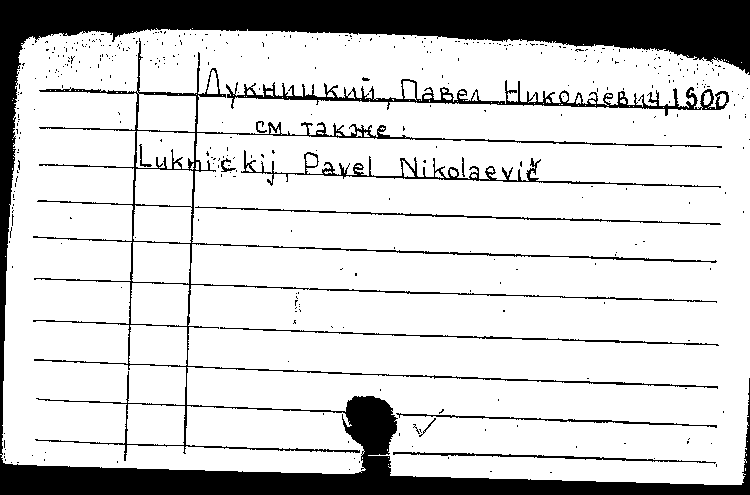 Лукницкий, Павел Николаевич, 1900
см. также:
Luknickij, Pavel Nikolaevič